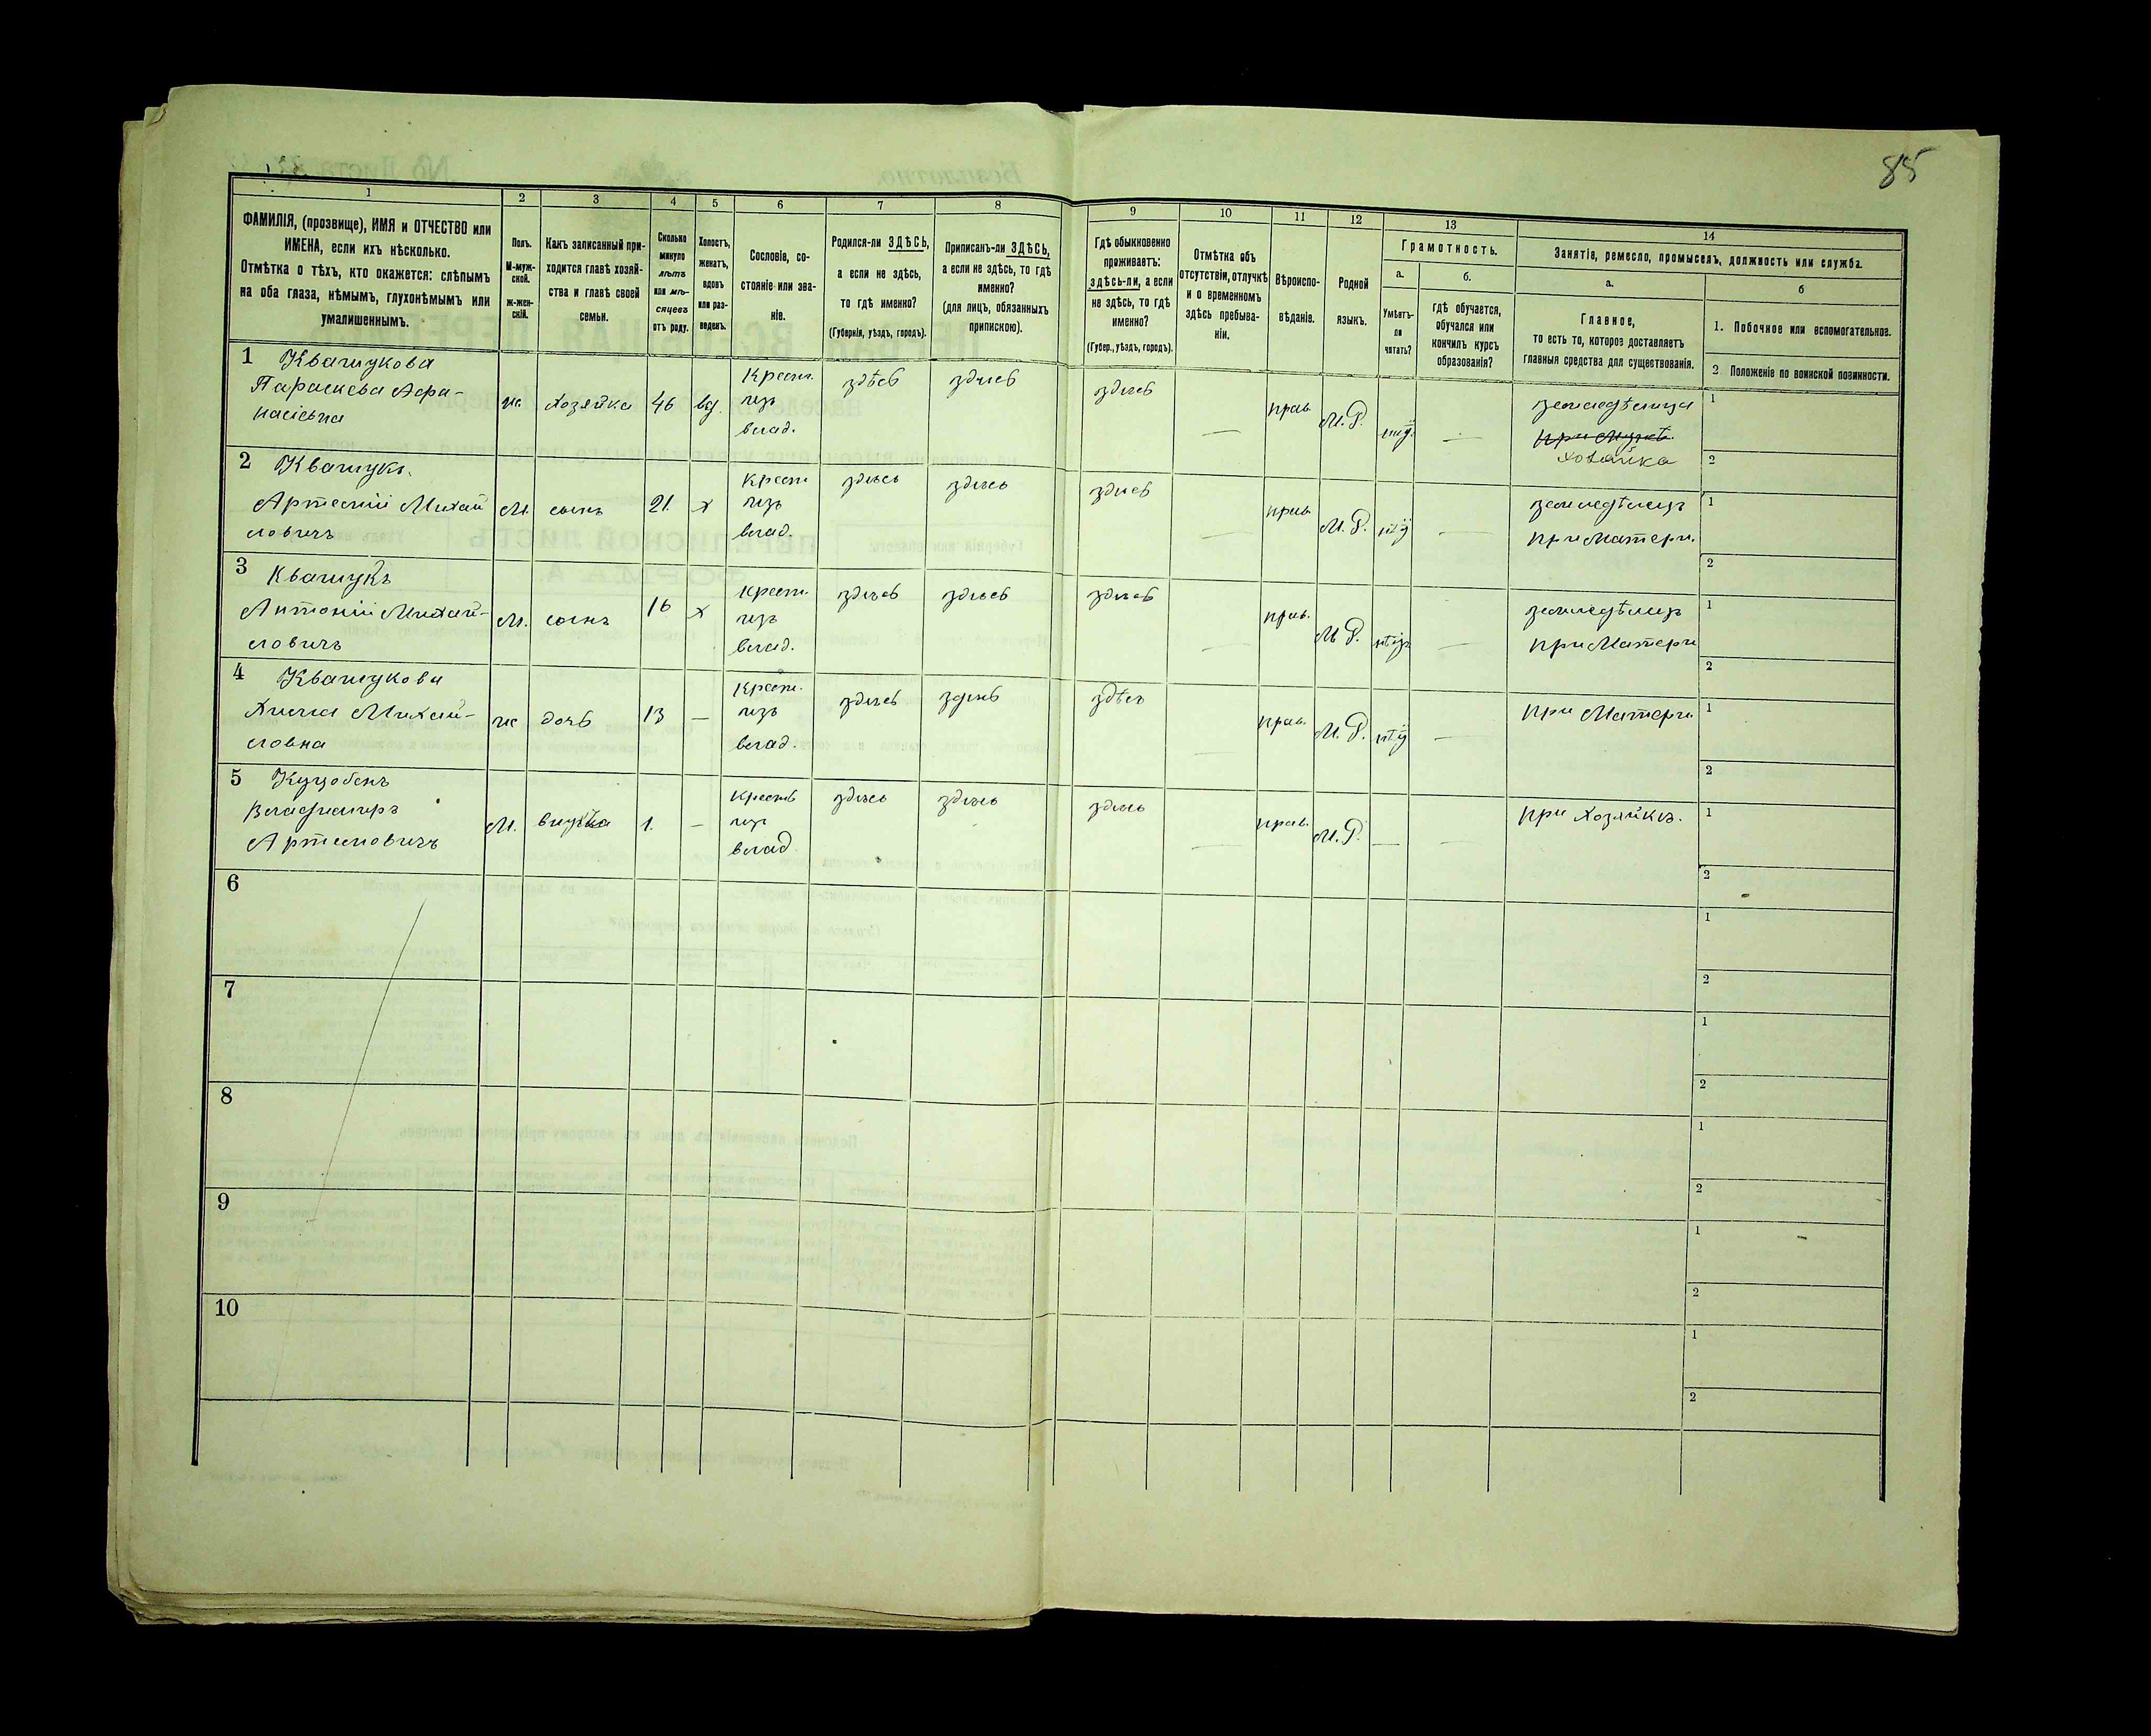 85
1
2
3
4
5
6
7
8
9
10
11
12
13
14
ФАМИЛІЯ, (прозвище), ИМЯ и ОТЧЕСТВО или
ИМЕНА, если ихъ нѣсколько.
Отмѣтка о тѣхъ, кто окажется: слѣпымъ
на оба глаза, нѣмымъ, глухонѣмымъ или
умалишеннымъ.
Полъ.
М-муж-
ской.
ж-жен-
скій.
Какъ записанный при-
ходится главѣ хозяй-
ства и главѣ своей
семьи.
Сколько
минуло
лѣтъ
или мѣ-
сяцевъ
отъ роду.
Холостъ,
женатъ,
вдовъ
или раз-
веденъ.
Сословіе, со-
стояніе или зва-
ніе.
Родился-ли ЗДѢСЬ,
а если не здѣсь,
то гдѣ именно?
(Губернія, уѣздъ, городъ).
Приписанъ-ли ЗДѢСЬ,
а если не здѣсь, то гдѣ
именно?
(для лицъ, обязанныхъ
припискою).
Гдѣ обыкновенно
проживаетъ:
здѣсь-ли, а если
не здѣсь, то гдѣ
именно?
(Губер., уѣздъ, городъ).
Отмѣтка объ
отсутствіи, отлучкѣ
и о временномъ
здѣсь пребыва-
ніи.
Вѣроиспо-
вѣданіе.
Родной
языкъ.
Грамотность.
а.
Умѣетъ-
ли
читать?
б.
гдѣ обучается,
обучался или
кончилъ курсъ
образованія?
Занятіе, ремесло, промыселъ, должность или служба.
а.
Главное,
то есть то, которое доставляетъ
главныя средства для существованія.
б
1. Побочное или вспомогательное.
2 Положеніе по воинской повинности.
1 Квашукова
Параскева Афа-
насіевна
ж. хозяйка 46 вд.
Крест.
изъ
влад.
здѣсь здѣсь здѣсь — прав. М.Р. —
земледѣлица
при мужѣ.
хозяйка
1
2
2 Квашукъ
Артемій Михай
ловичъ
М. сынъ 21. х
Крест
изъ
влад.
здѣсь здѣсь здѣсь — прав. М.Р. —
земледѣлецъ
при Матери.
1
2
3 Квашукъ
Антоній Михай-
ловичъ
М. сынъ 16 х
Крест.
изъ
влад.
здѣсь здѣсь здѣсь — прав. М.Р. —
земледѣлецъ
при Матери
1
2
4 Квашукова
Химa Михай-
ловна
ж дочь 13 —
Крест.
изъ
влад.
здѣсь здѣсь здѣсь — прав. М.Р. —
при Матери
1
2
5
Владимиръ
Артемовичъ
М. 1. —
Крестъ
изъ
влад.
здѣсь здѣсь здѣсь — прав. М.Р. — —
при хозяйкѣ.
1
2
6
1
2
7
1
2
8
1
2
9
1
2
10
1
2